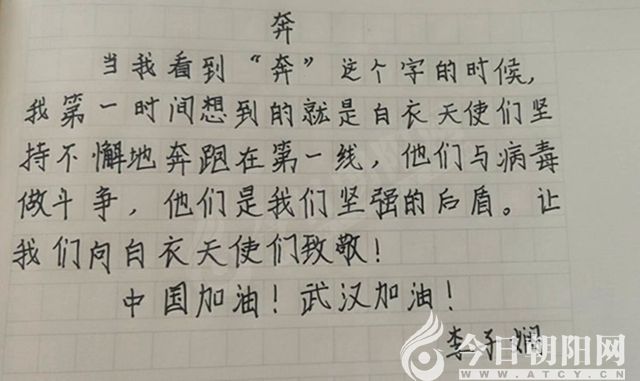 奔
当我看到“奔”这个字的时候,
我第一时间想到的就是白衣天使们坚
持不懈地奔跑在第一线,他们与病毒
做斗争,他们是我们坚强的后盾。让
我们向白衣天使们致敬!
中国加油!武汉加油!
李子娴
今日朝阳网
WWW.ATCY.CN